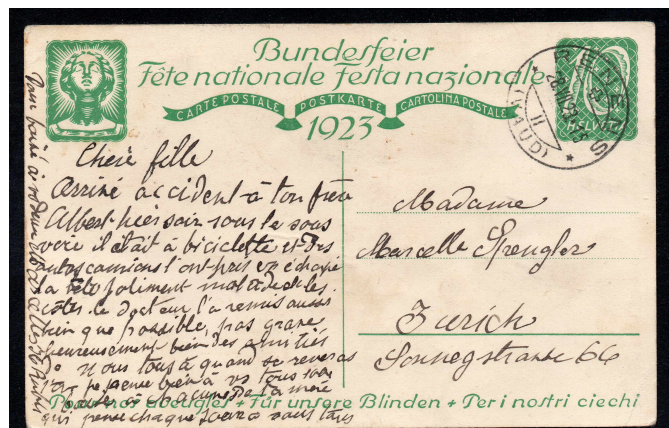 Bundesfeier
Fête nationale Festa nazionale
CARTE POSTALE POSTKARTE CARTOLINA POSTALE
1923
HELVETIA
RENENS
(VAUD)
II
Chère fille
Arrivé accident à ton frère
Albert hier soir sous le sous
voie il était à biciclette et des
autos camions l'ont pris
la tête joliment mal
côtes le docteur l'a remis aussi
bien que possible, pas grave
heureusement bien des amitiés
nous tous à quand
pense bien à vs tous
la mère
qui pense chaque à vous tous
Madame
Marcelle Spengler
Zurich
Sonnegstrasse 66
Pour nos aveugles + Für unsere Blinden + Per i nostri ciechi